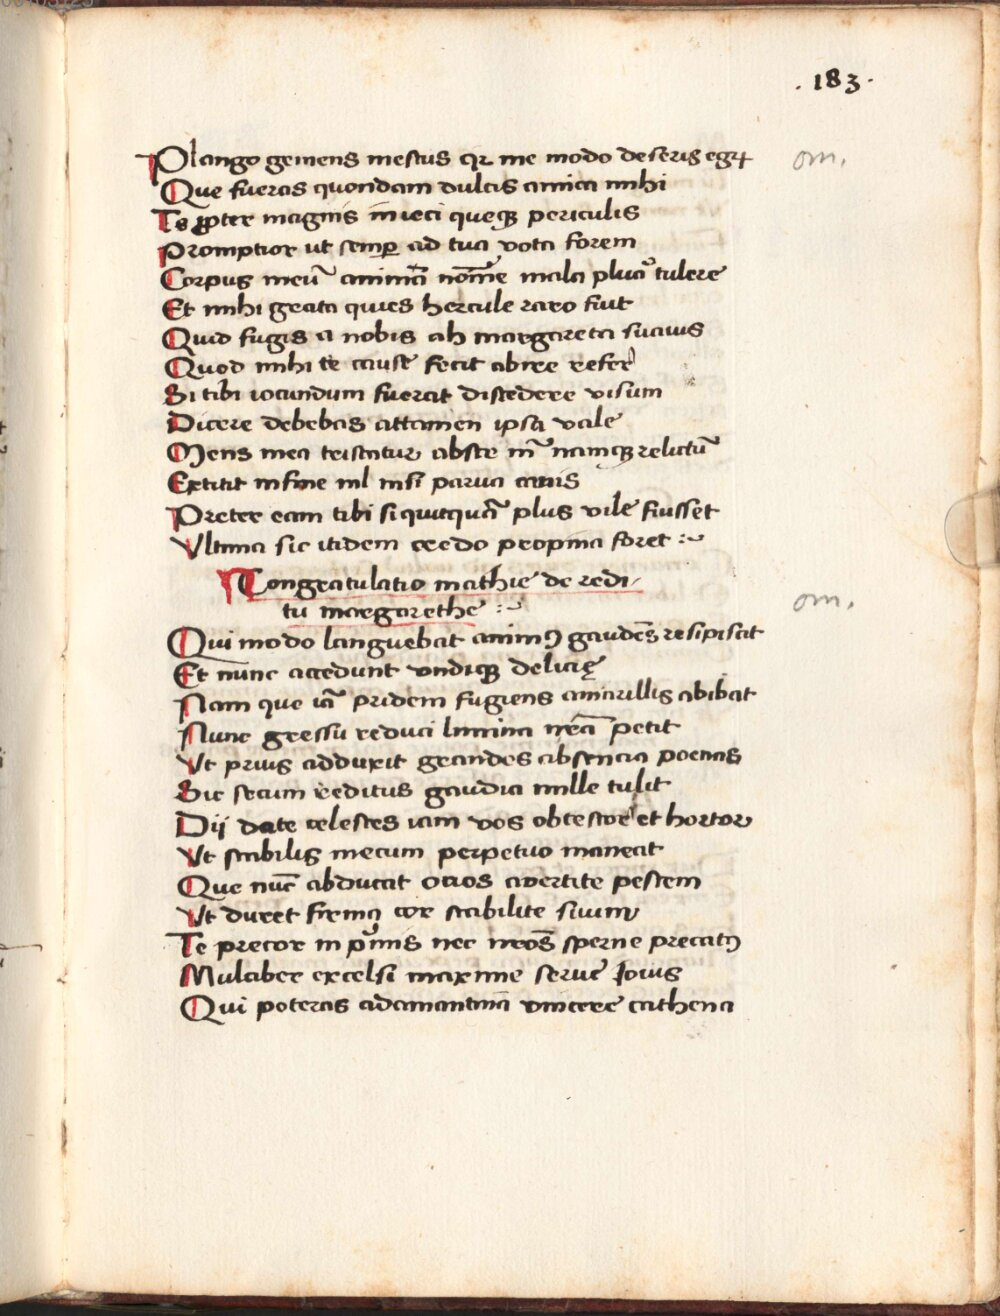 . 183 .
Plango gemens mestus qr me modo deseris egrū
om.
Que fueras quondam dulcis amica mihi
Te ꝓpter magnis inieci queqꝫ periculis
Promptior ut semꝑ ad tua vota forem
Corpus meū animā nōmē mala pluā tulere
Et mihi grata quies hercule raro fuit
Quid fugis a nobis ah margareta suauis
Quod mihi te cause fecit abire refer
Si tibi iocundum fuerat discedere visum
Dicere debebas attamen ipsa vale
Mens mea tristatur abste m̄ namqꝫ relictū
Extitit in fine nil nisi parua canis
Preter eam tibi si quitquā plus vile fuisset
Vltima sic itidem credo propina foret :~
Congratulatio mathie de redi/
tu margarethe :~
om.
Qui modo languebat animꝰ gaudēs resipiscat
Et nunc accedunt vndiqꝫ delicię
Nam que iā pridem fugiens amarillis abibat
Nunc gressu reduci lumina nrā petit
Vt prius adduxit grandes absencia poenas
Sic secum reditus gaudia mille tulit
Dij date celestes iam vos obtestor et hortor
Vt stabilis mecum perpetuo maneat
Que nūc abducat ocios avertite pestem
Vt duret firmꝰ cor stabilite suum
Te precor in pͥmis nec nrōs sperne precatꝰ
Mulciber excelsi maxime serue Jouis
Qui poteras adamantina vincere cathena